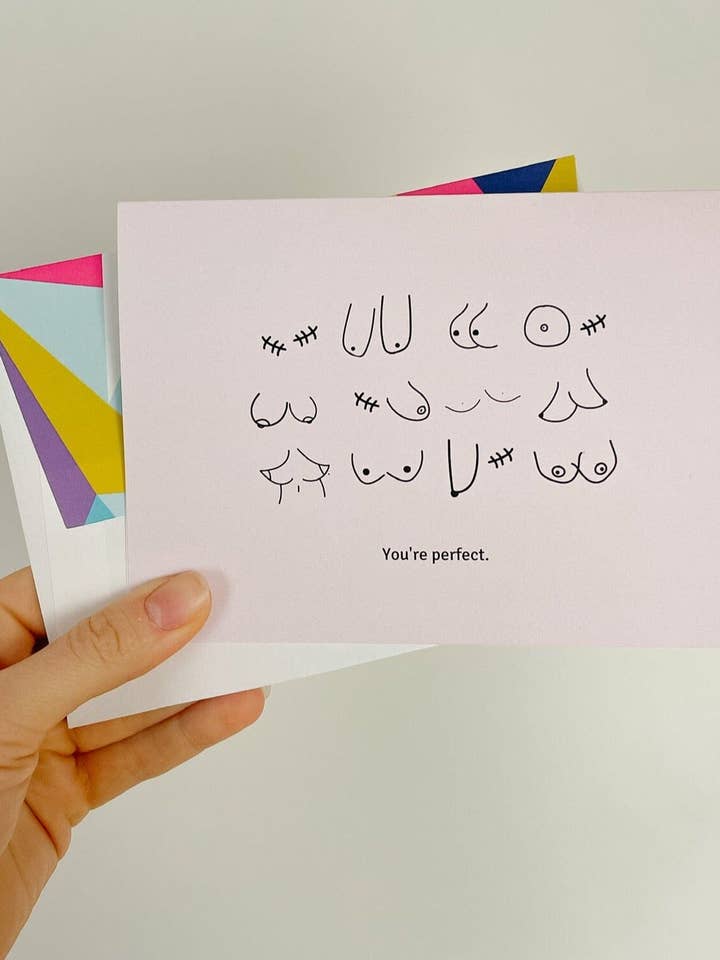 You're perfect.